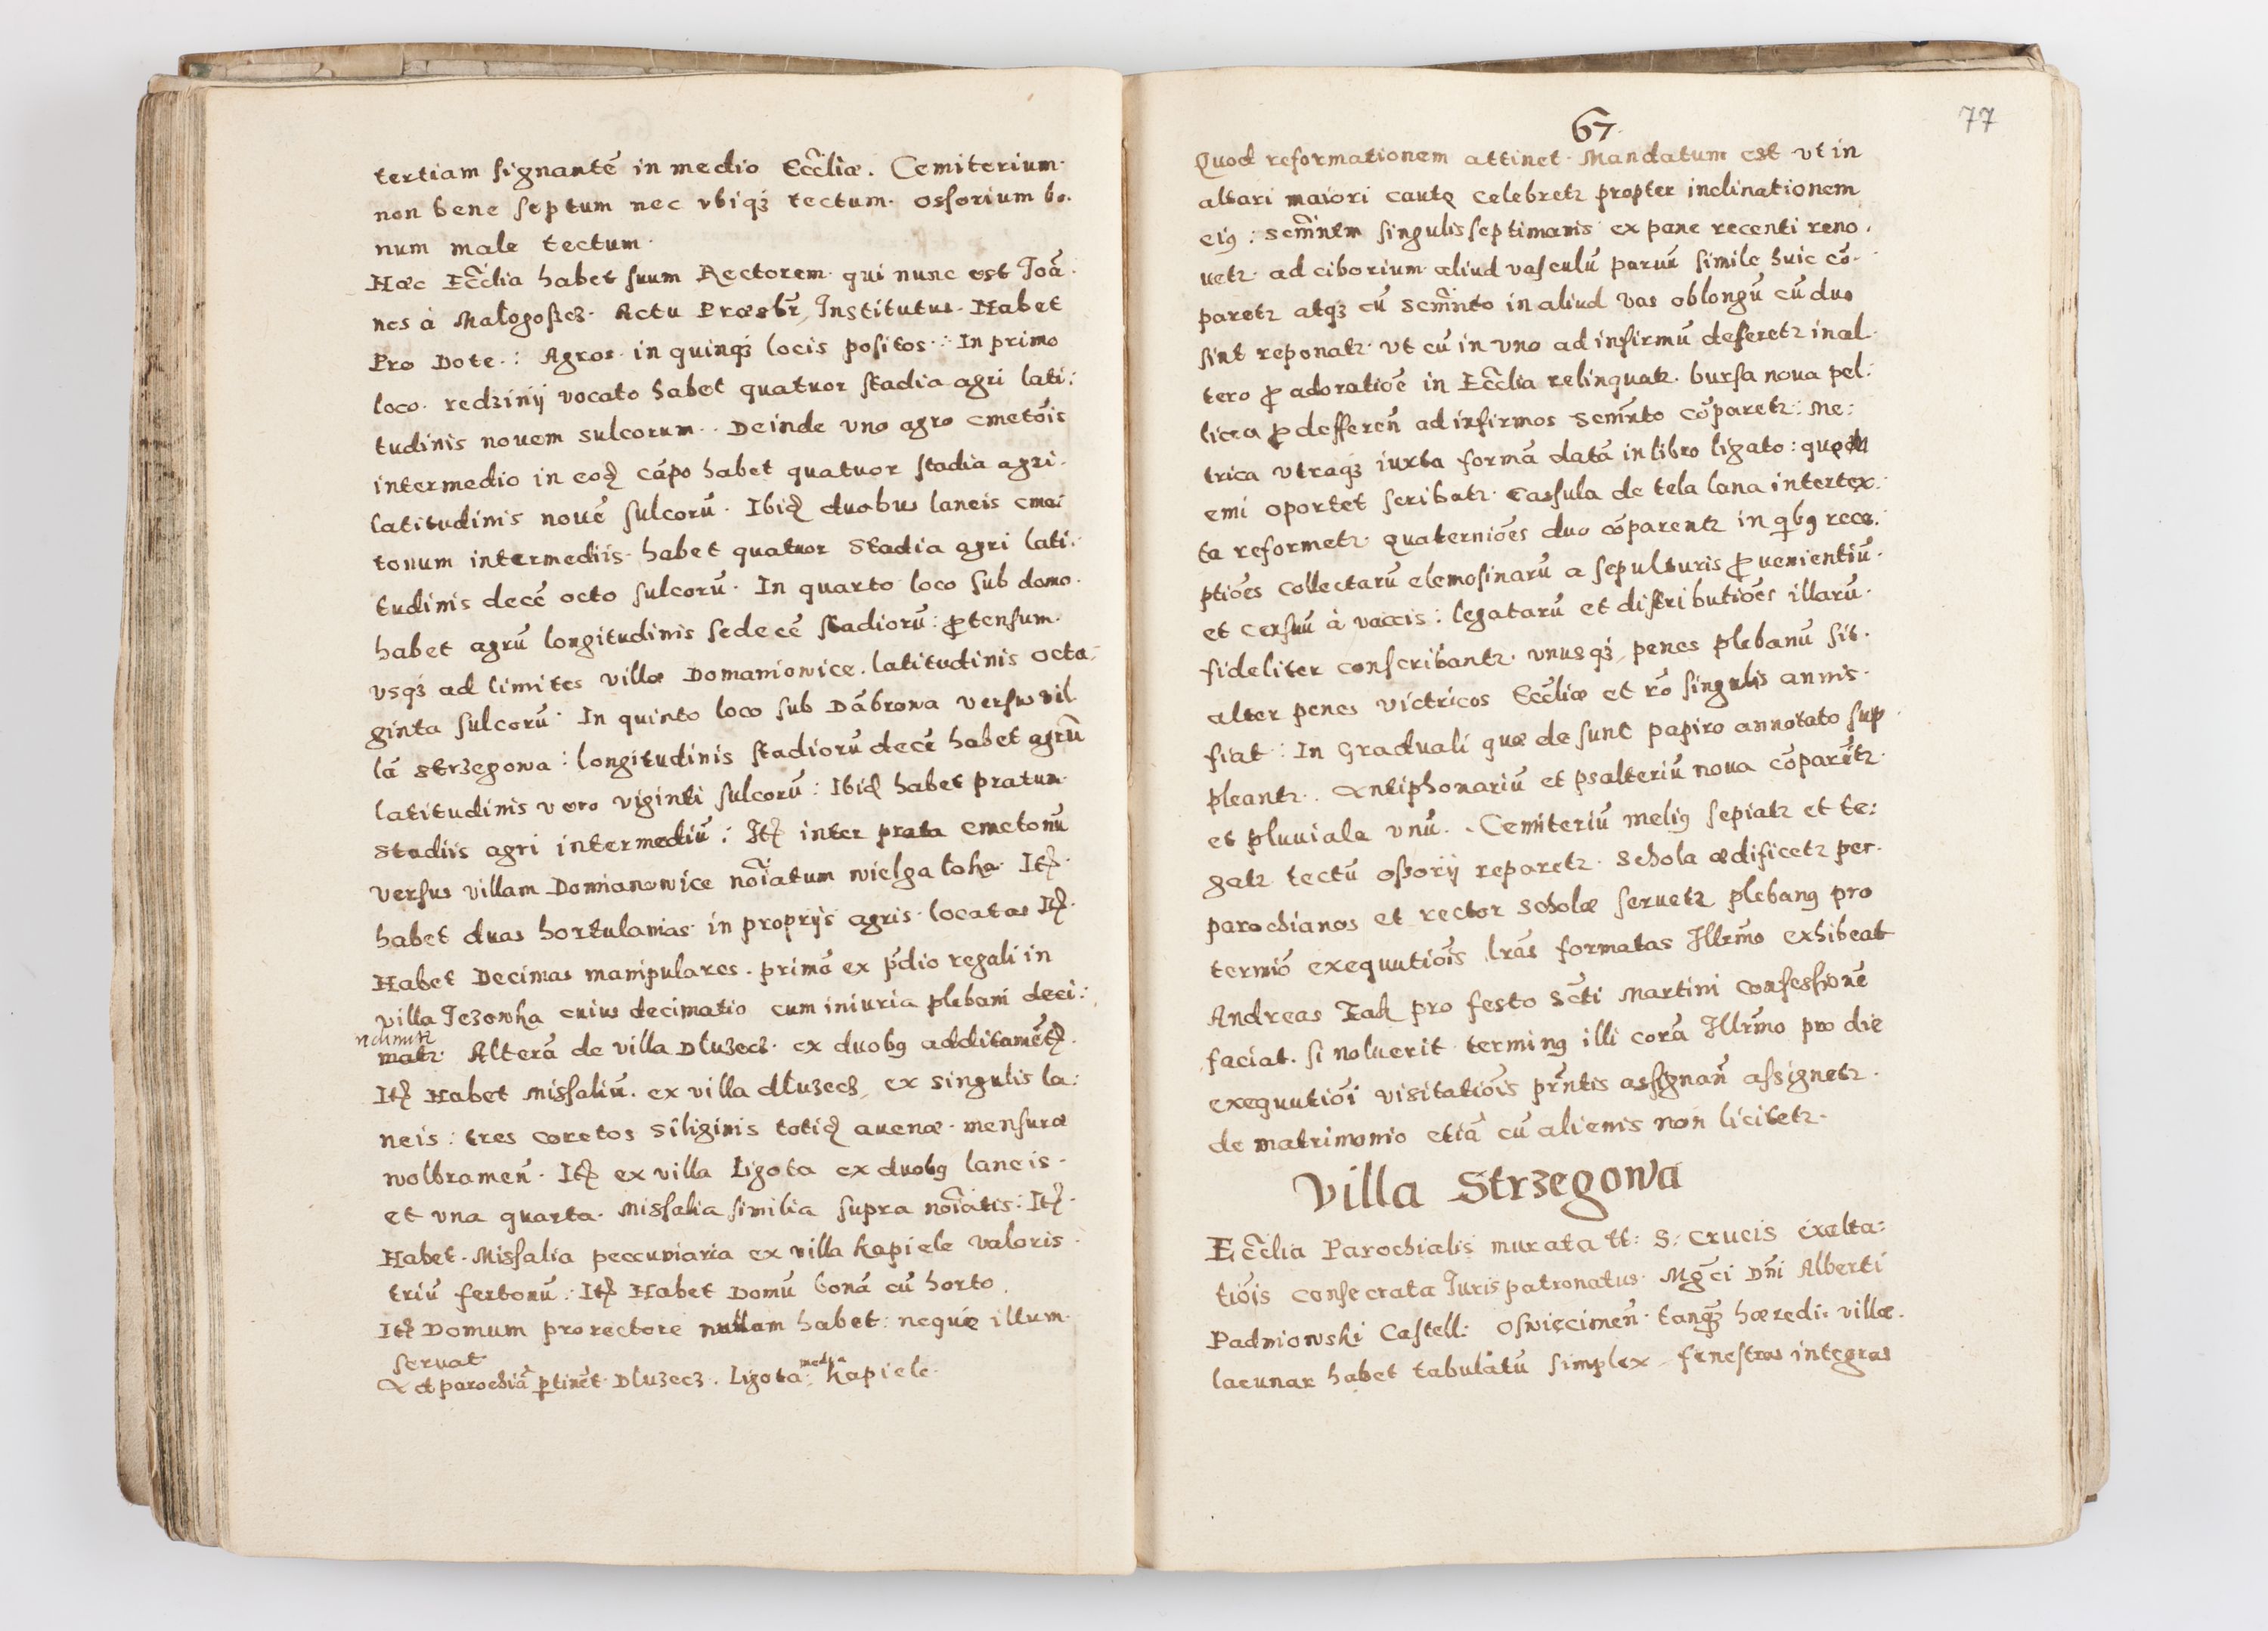 tertiam signantẽ in medio Eccl̃iæ. Cemiterium
non bene septum nec vbiqȝ tectum. ossorium bo.
num male tectum.
Hæc Eccl̃ia habet suum Rectorem. qui nunc est Joã.
nes à Małogoßcz. Actu Præsbr̃, Institutus. Habet
Pro Dote.: Agros in quinqȝ locis positos.: In primo
loco. redzinÿ vocato habet quatuor stadia agri lati:
tudinis nouem sulcorum. Deinde vno agro cmetõis
intermedio in eoꝺ cãpo habet quatuor stadia agri.
latitudinis nouẽ sulcorũ. Ibiꝺ duobus laneis cme:
tonum intermediis habet quatuor Stadia agri lati:
tudinis decẽ octo sulcorũ. In quarto loco sub domo.
habet agrũ longitudinis sedecẽ stadiorũ: ꝓtensum.
vsqȝ ad limites villæ Domaniowice. latitudinis octo:
ginta sulcorũ. In quinto loco sub Dãbrowa versus vil
lã Strzegowa: longitudinis stadiorũ decẽ habet agrũ
latitudinis vero viginti sulcorũ: Ibiꝺ habet pratum.
Stadiis agri intermediũ: Itꝫ inter prata cmetonũ
versus villam Domianowice nõiatum wielga łoka. Itꝫ.
habet duas hortulanias in proprÿs agris locatas Itꝫ.
Habet Decimas manipulares. primã ex p̃dio regali in
villa Jezowka cuius decimatio cum iniuria plebani deci:
matꝛ. Alterã de villa Dłuzecz. ex duobꝰ additamẽtꝫ.
Itꝫ Habet Missaliũ. ex villa dłuzecz, ex singulis la:
neis: tres coretos siliginis totiꝺ auenæ. mensuræ
wolbramen̄. Itꝫ ex villa Ligota ex duobꝰ laneis.
et vna quarta. Missalia similia supra nõiatis: Itꝫ.
Habet. Missalia peccuniaria ex villa Kapiele valoris.
triũ fertonũ. Itꝫ Habet Domũ bonã cũ horto.
Itꝫ Domum pro rectore nullam habet: neque illum.
seruat.
Ad parochiã ꝑtinẽt. Dłuzecz. Ligota: media Kapiele.
67.
77
Quod reformationem attinet. Mandatum est vt in
altari maiori cautę celebretꝛ propter inclinationem
eiꝰ: Scm̃ntm singulis septimanis ex pane recenti reno.
uetꝛ ad ciborium aliud vasculũ paruũ simile huic cõ.
paretꝛ atqȝ cũ scm̃nto in aliud vas oblongũ cũ duo
sint reponatꝛ. vt cũ in vno ad infirmũ deferetꝛ in al.
tero ꝓ adoratiõe in Eccl̃ia relinquatꝛ. bursa noua pel:
licea ꝓ defferen̄ ad infirmos scm̃nto cõparetꝛ: Me:
trica vtraqȝ iuxta formã datã in libro ligato: quem
emi oportet scribatꝛ. Cassula de tela lana intertex.
ta reformetꝛ. Quaterniões duo cõparentꝛ in qͥbꝰ rece.
ptiões collectarũ elemosinarũ a sepulturis ꝓuenientiũ.
et censuũ à vaccis: legatarũ et distributiões illarũ.
fideliter conscribantꝛ. vnusqȝ penes plebanũ sit.
alter penes victricos Eccl̃iæ et rõ singulis annis.
fiat: In Graduali quæ desunt papiro annotato sup
pleantꝛ. Antiphonariũ et psalteriũ noua cõparẽtꝛ.
et pluuiale vnũ. Cemiteriũ meliꝰ sepiatꝛ et te:
gatꝛ tectũ oßorÿ reparetꝛ. Schola ædificetꝛ per.
parochianos et rector scholæ seruetꝛ plebanꝰ pro
termiõ exequutiõis lr̃as formatas Illr̃mo exhibeat
Andreas Żak pro festo Scti Martini confessionẽ
faciat. si noluerit terminꝰ illi corã Illr̃mo pro die
exequutiõi visitatiõis pr̃ntis assignan̄ assignetꝛ.
de matrimonio etiã cũ alienis non licitetꝛ.
Villa Strzegowa
Eccl̃ia Parochialis murata tt: S: Crucis exalta:
tiõis consecrata Juris patronatus. Mg̃ci Dn̄i Alberti
Padniowski Castell: Oswięcimen̄. tanqȝ hæredis villæ.
lacunar habet tabulatũ simplex fenestras integras